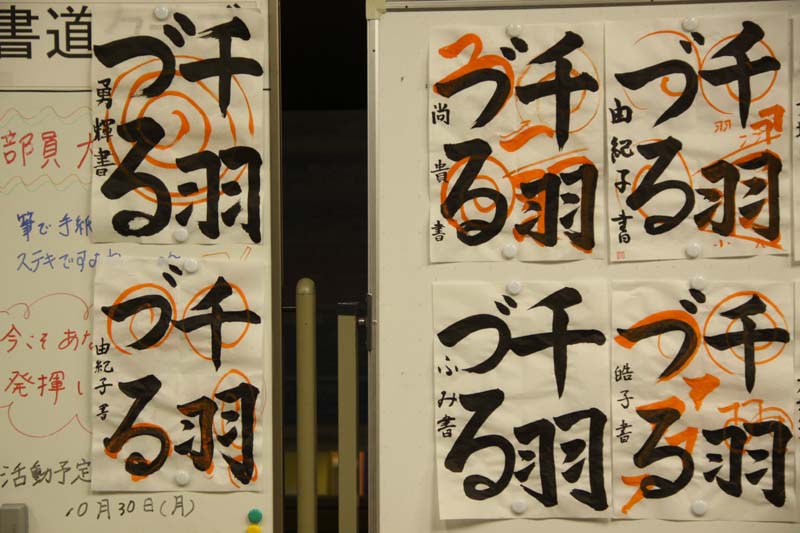 書道
部員大
筆で手紙
ステキですよね
今こそあな
発揮し
活動予定
10月30日(月)
千羽
づる
勇輝書
千羽
づる
由紀子書
千羽
づる
尚貴書
千羽
づる
由紀子書
千羽
づる
ふみ書
千羽
づる
皓子書